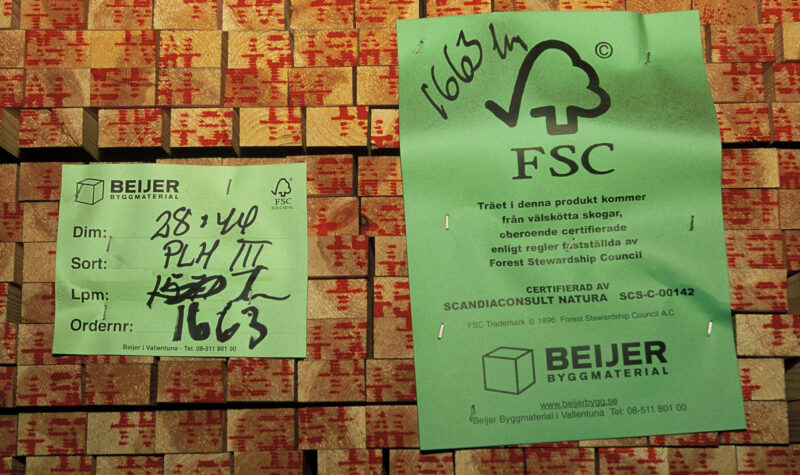 BEIJER
BYGGMATERIAL
FSC
Dim: 28 × 44
Sort: PLH III
Lpm:
Ordernr: 1663
Beijer i Vallentuna - Tel. 08-511 801 00
1663 lm
©
FSC
Träet i denna produkt kommer
från välskötta skogar,
oberoende certifierade
enligt regler fastställda av
Forest Stewardship Council
CERTIFIERAD AV
SCANDIACONSULT NATURA SCS-C-00142
FSC Trademark © 1996 Forest Stewardship Council A.C
BEIJER
BYGGMATERIAL
www.beijerbygg.se
Beijer Byggmaterial i Vallentuna Tel: 08-511 801 00